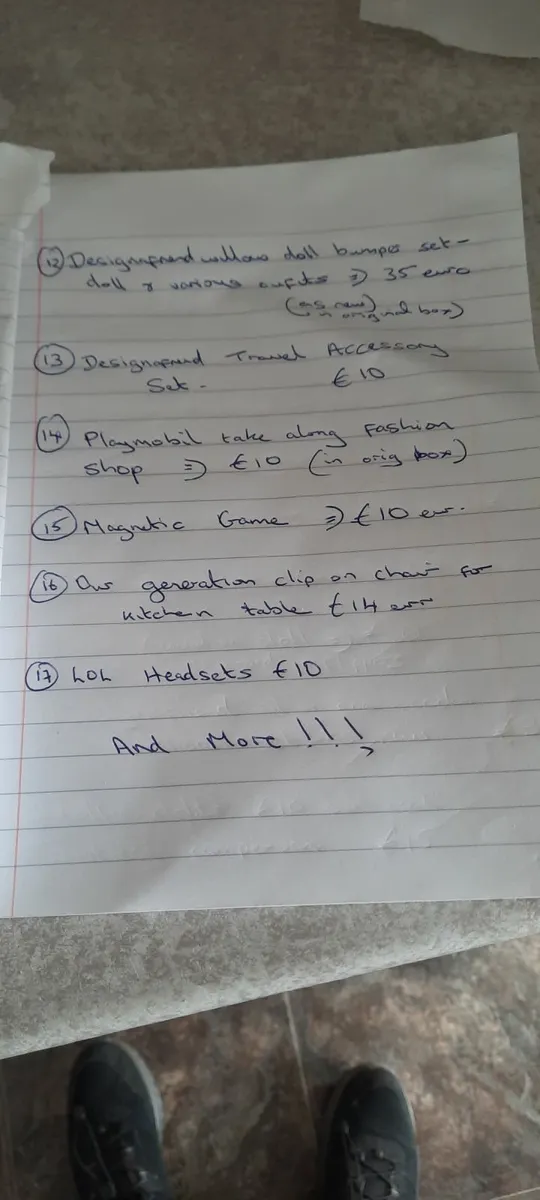 (12) Designafriend willow doll bumper set -
doll & various outfits => 35 euro
(as new)
in original box)
(13) Designafriend Travel Accessory
Set. €10
(14) Playmobil take along Fashion
Shop => €10 (in orig box)
(15) Magnetic Game => €10 eur.
(16) Our generation clip on chair for
kitchen table €14 eur
(17) LOL Headsets €10
And More !!!!